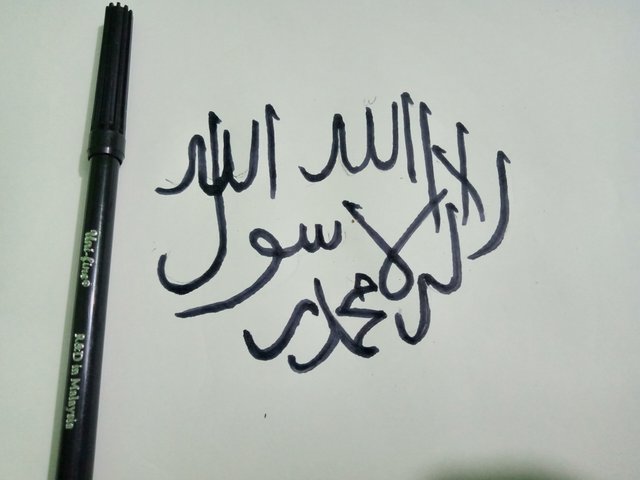 لا إله إلا الله محمد رسول الله
Uni-fine®
R&D in Malaysia